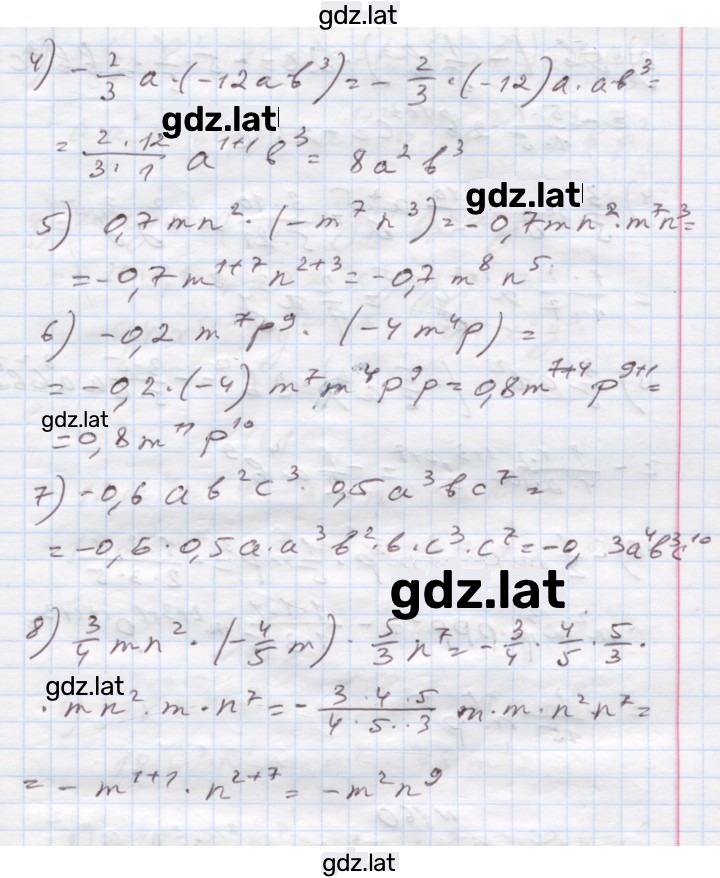 gdz.lat
4) -2/3 a·(-12ab³) = -2/3·(-12)a·ab³ =
gdz.lat
= 2·12/3·1 a¹⁺¹b³ = 8a²b³
gdz.lat
5) 0,7mn²·(-m⁷n³) = -0,7mn²·m⁷n³ =
= -0,7m¹⁺⁷n²⁺³ = -0,7m⁸n⁵
6) -0,2 m⁷p⁹·(-4m⁴p) =
= -0,2·(-4) m⁷m⁴p⁹p = 0,8m⁷⁺⁴p⁹⁺¹ =
gdz.lat
= 0,8m¹¹p¹⁰
7) -0,6ab²c³·0,5a³bc⁷ =
= -0,6·0,5a·a³b²·b·c³·c⁷ = -0,3a⁴b³c¹⁰
gdz.lat
8) 3/4 mn²·(-4/5 m)·5/3 n⁷ = -3/4·4/5·5/3·
gdz.lat
·mn²·m·n⁷ = -3·4·5/4·5··3 m·m·n²n⁷ =
= -m¹⁺¹·n²⁺⁷ = -m²n⁹
gdz.lat